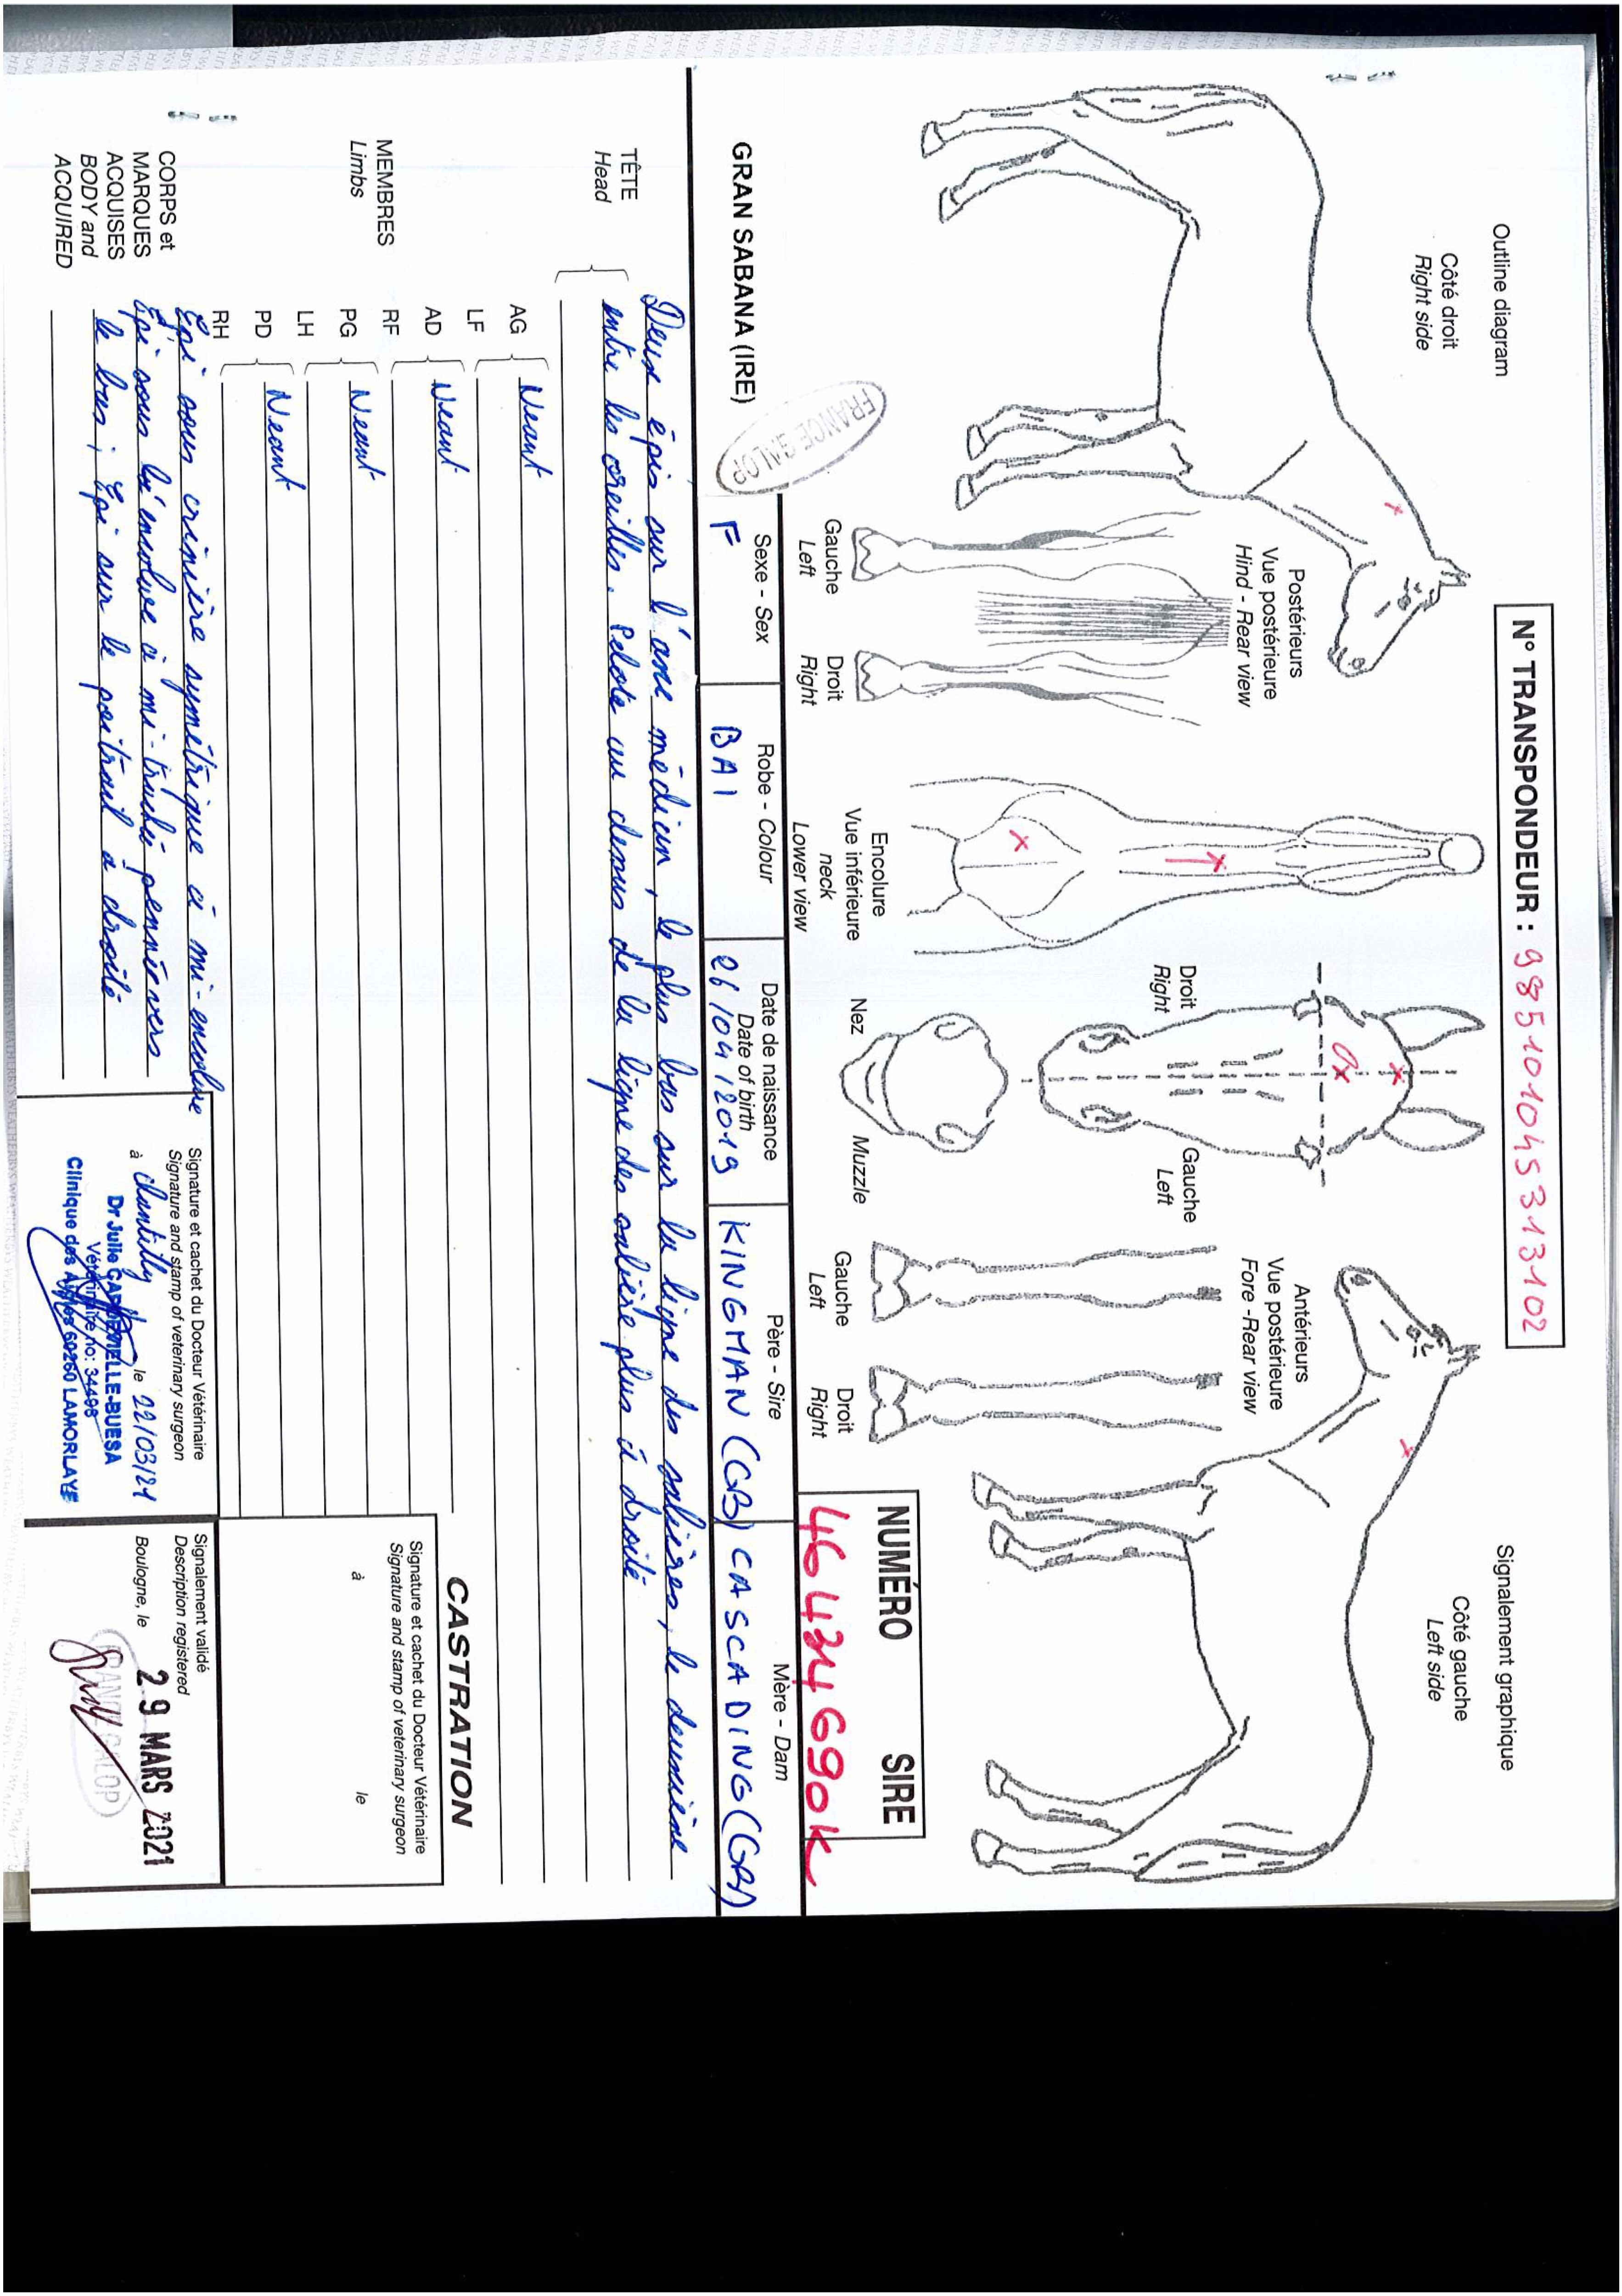 Outline diagram
N° TRANSPONDEUR : 985101045313102
Signalement graphique
Côté droit
Right side
Côté gauche
Left side
Postérieurs
Vue postérieure
Hind - Rear view
Gauche
Left
Droit
Right
Encolure
Vue inférieure
neck
Lower view
Droit
Right
Gauche
Left
Nez
Muzzle
Antérieurs
Vue postérieure
Fore - Rear view
Gauche
Left
Droit
Right
NUMÉRO SIRE
FRANCE GALOP
GRAN SABANA (IRE)
Sexe - Sex
F
Robe - Colour
BAI
Date de naissance
Date of birth
26/04/2019
Père - Sire
KINGMAN (GB)
Mère - Dam
CASCADING (GB)
TÊTE
Head
Deux épis sur l'axe médian, le plus bas sur la ligne des salières, le deuxième
entre les oreilles. Pelote au dessus de la ligne des salière plus à droite
MEMBRES
Limbs
AG
LF
Neant
AD
RF
Neant
PG
LH
Neant
PD
RH
Neant
CORPS et
MARQUES
ACQUISES
BODY and
ACQUIRED
Epi sous crinière symétrique à mi-encolure
Epi sous l'encolure à mi-trachée penné vers
le bas ; Epi sur le poitrail à droite
Signature et cachet du Docteur Vétérinaire
Signature and stamp of veterinary surgeon
à Chantilly le 22/03/21
Dr Julie
Vétérinaire no: 34498
Clinique des Aigles 60260 LAMORLAYE
CASTRATION
Signature et cachet du Docteur Vétérinaire
Signature and stamp of veterinary surgeon
à le
Signalement validé
Description registered
Boulogne, le 29 MARS 2021
FRANCE GALOP